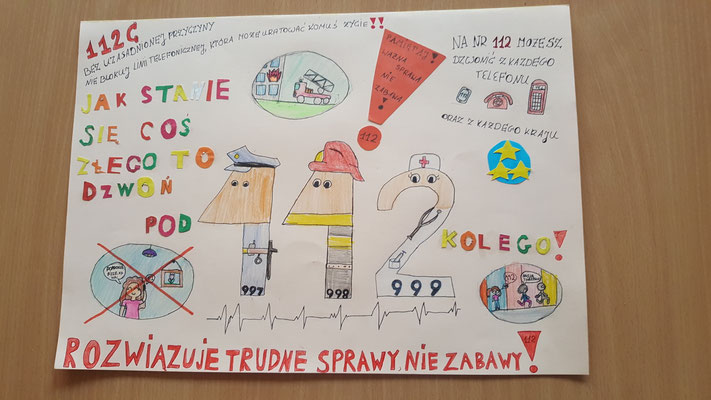 112G
BEZ UZASADNIONEJ PRZYCZYNY
NIE BLOKUJ LINII TELEFONICZNEJ, KTÓRA MOŻE URATOWAĆ KOMUŚ ŻYCIE!!
PAMIĘTAJ
WAŻNA
SPRAWA
NIE
ZABAWA!
112
NA NR 112 MOŻESZ
DZWONIĆ Z KAŻDEGO
TELEFONU
ORAZ Z KAŻDEGO KRAJU
JAK STANIE
SIĘ COŚ
ZŁEGO TO
DZWOŃ
POD
112
997
998
999
KOLEGO!
112
ROZWIĄZUJE TRUDNE SPRAWY, NIE ZABAWY!
112